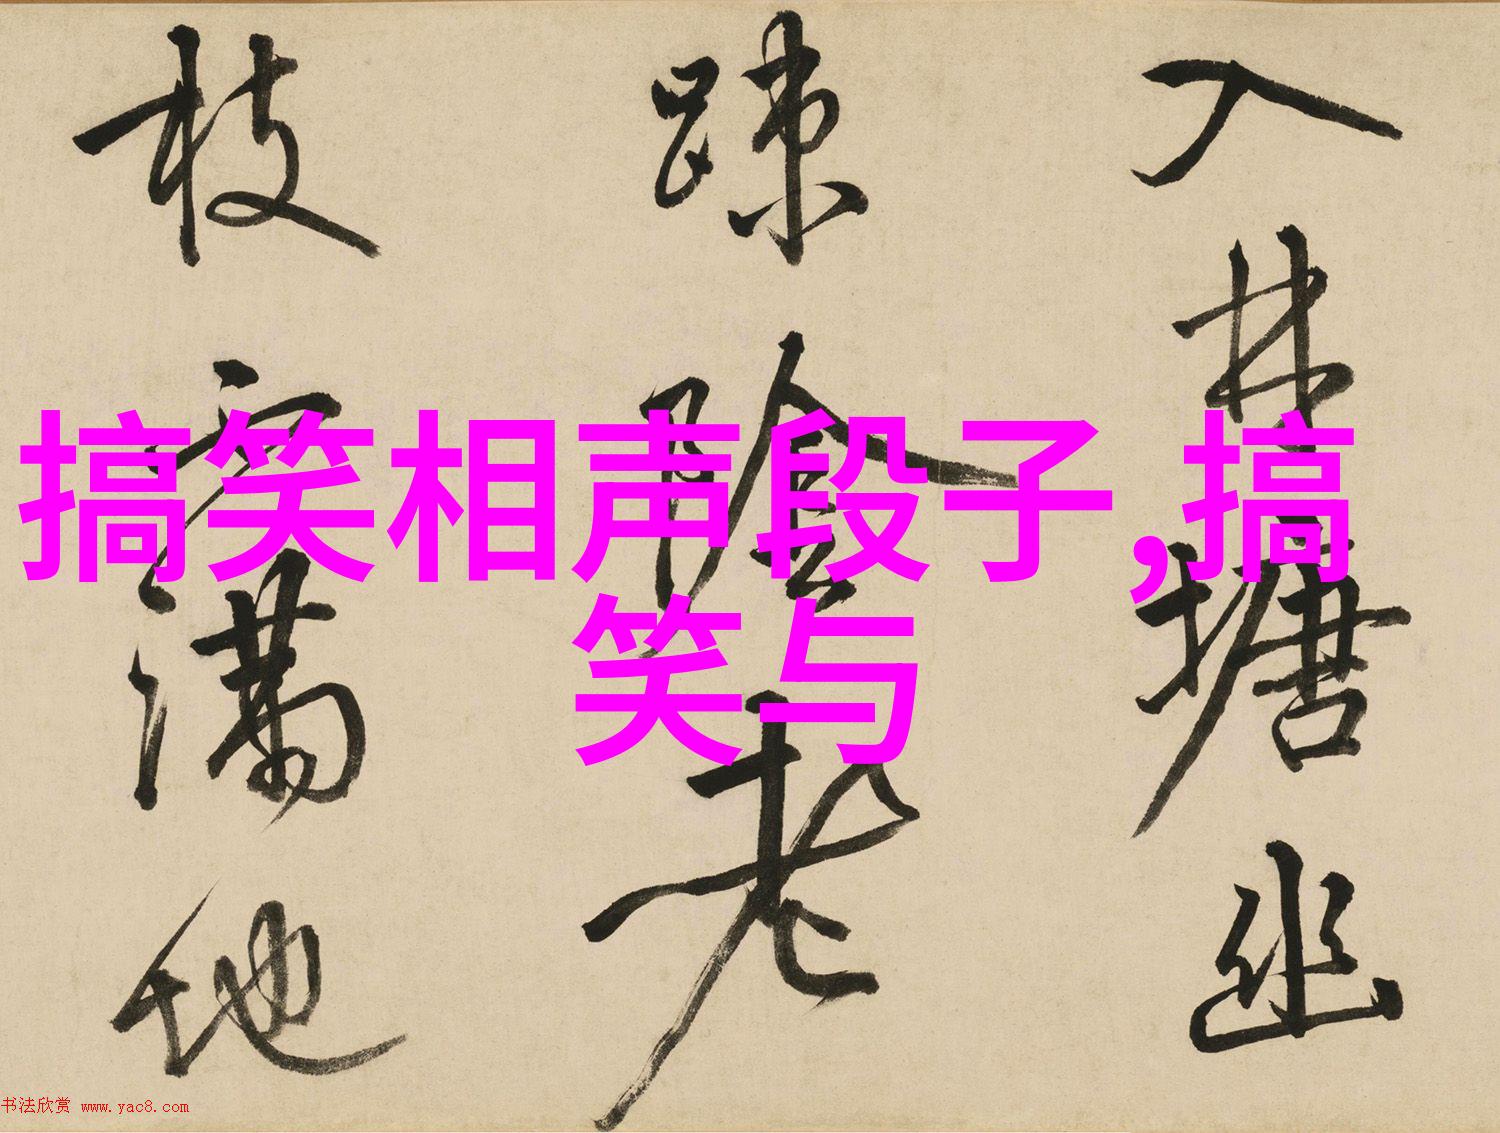 搞笑相声段子,搞
笑与
入林塘幽
踈陰老
枝满地
书法欣赏 www.yac8.com